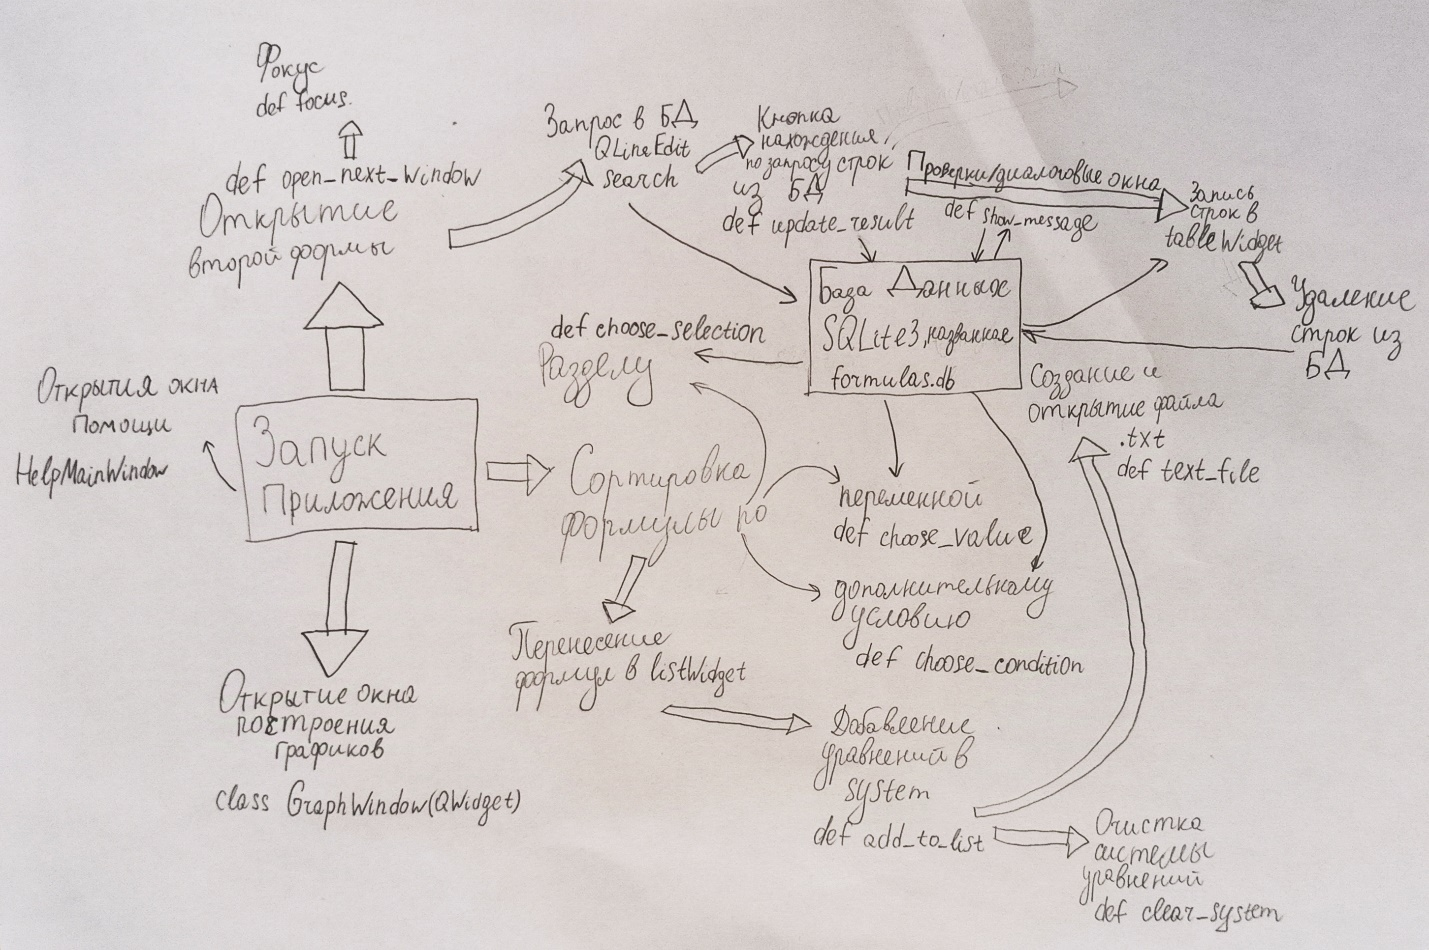 Фокус
def focus.
def open_next_window
Открытие
второй формы
Запрос в БД
QLineEdit
search
Кнопка
нахождения,
по запросу строк
из БД
def update_result
Проверки/диалоговые окна
def show_message
Запись
строк в
tableWidget
Удаление
строк из
БД
База Данных
SQLite3, названная
formulas.db
def choose_selection
Разделу
Открытия окна
помощи
HelpMainWindow
Запуск
Приложения
Сортировка
формулы по
переменной
def choose_value
дополнительному
условию
def choose_condition
Создание и
открытие файла
.txt
def text_file
Перенесение
формул в listWidget
Открытие окна
построения
графиков
class GraphWindow(QWidget)
Добавление
уравнений в
system
def add_to_list
Очистка
системы
уравнений
def clear_system